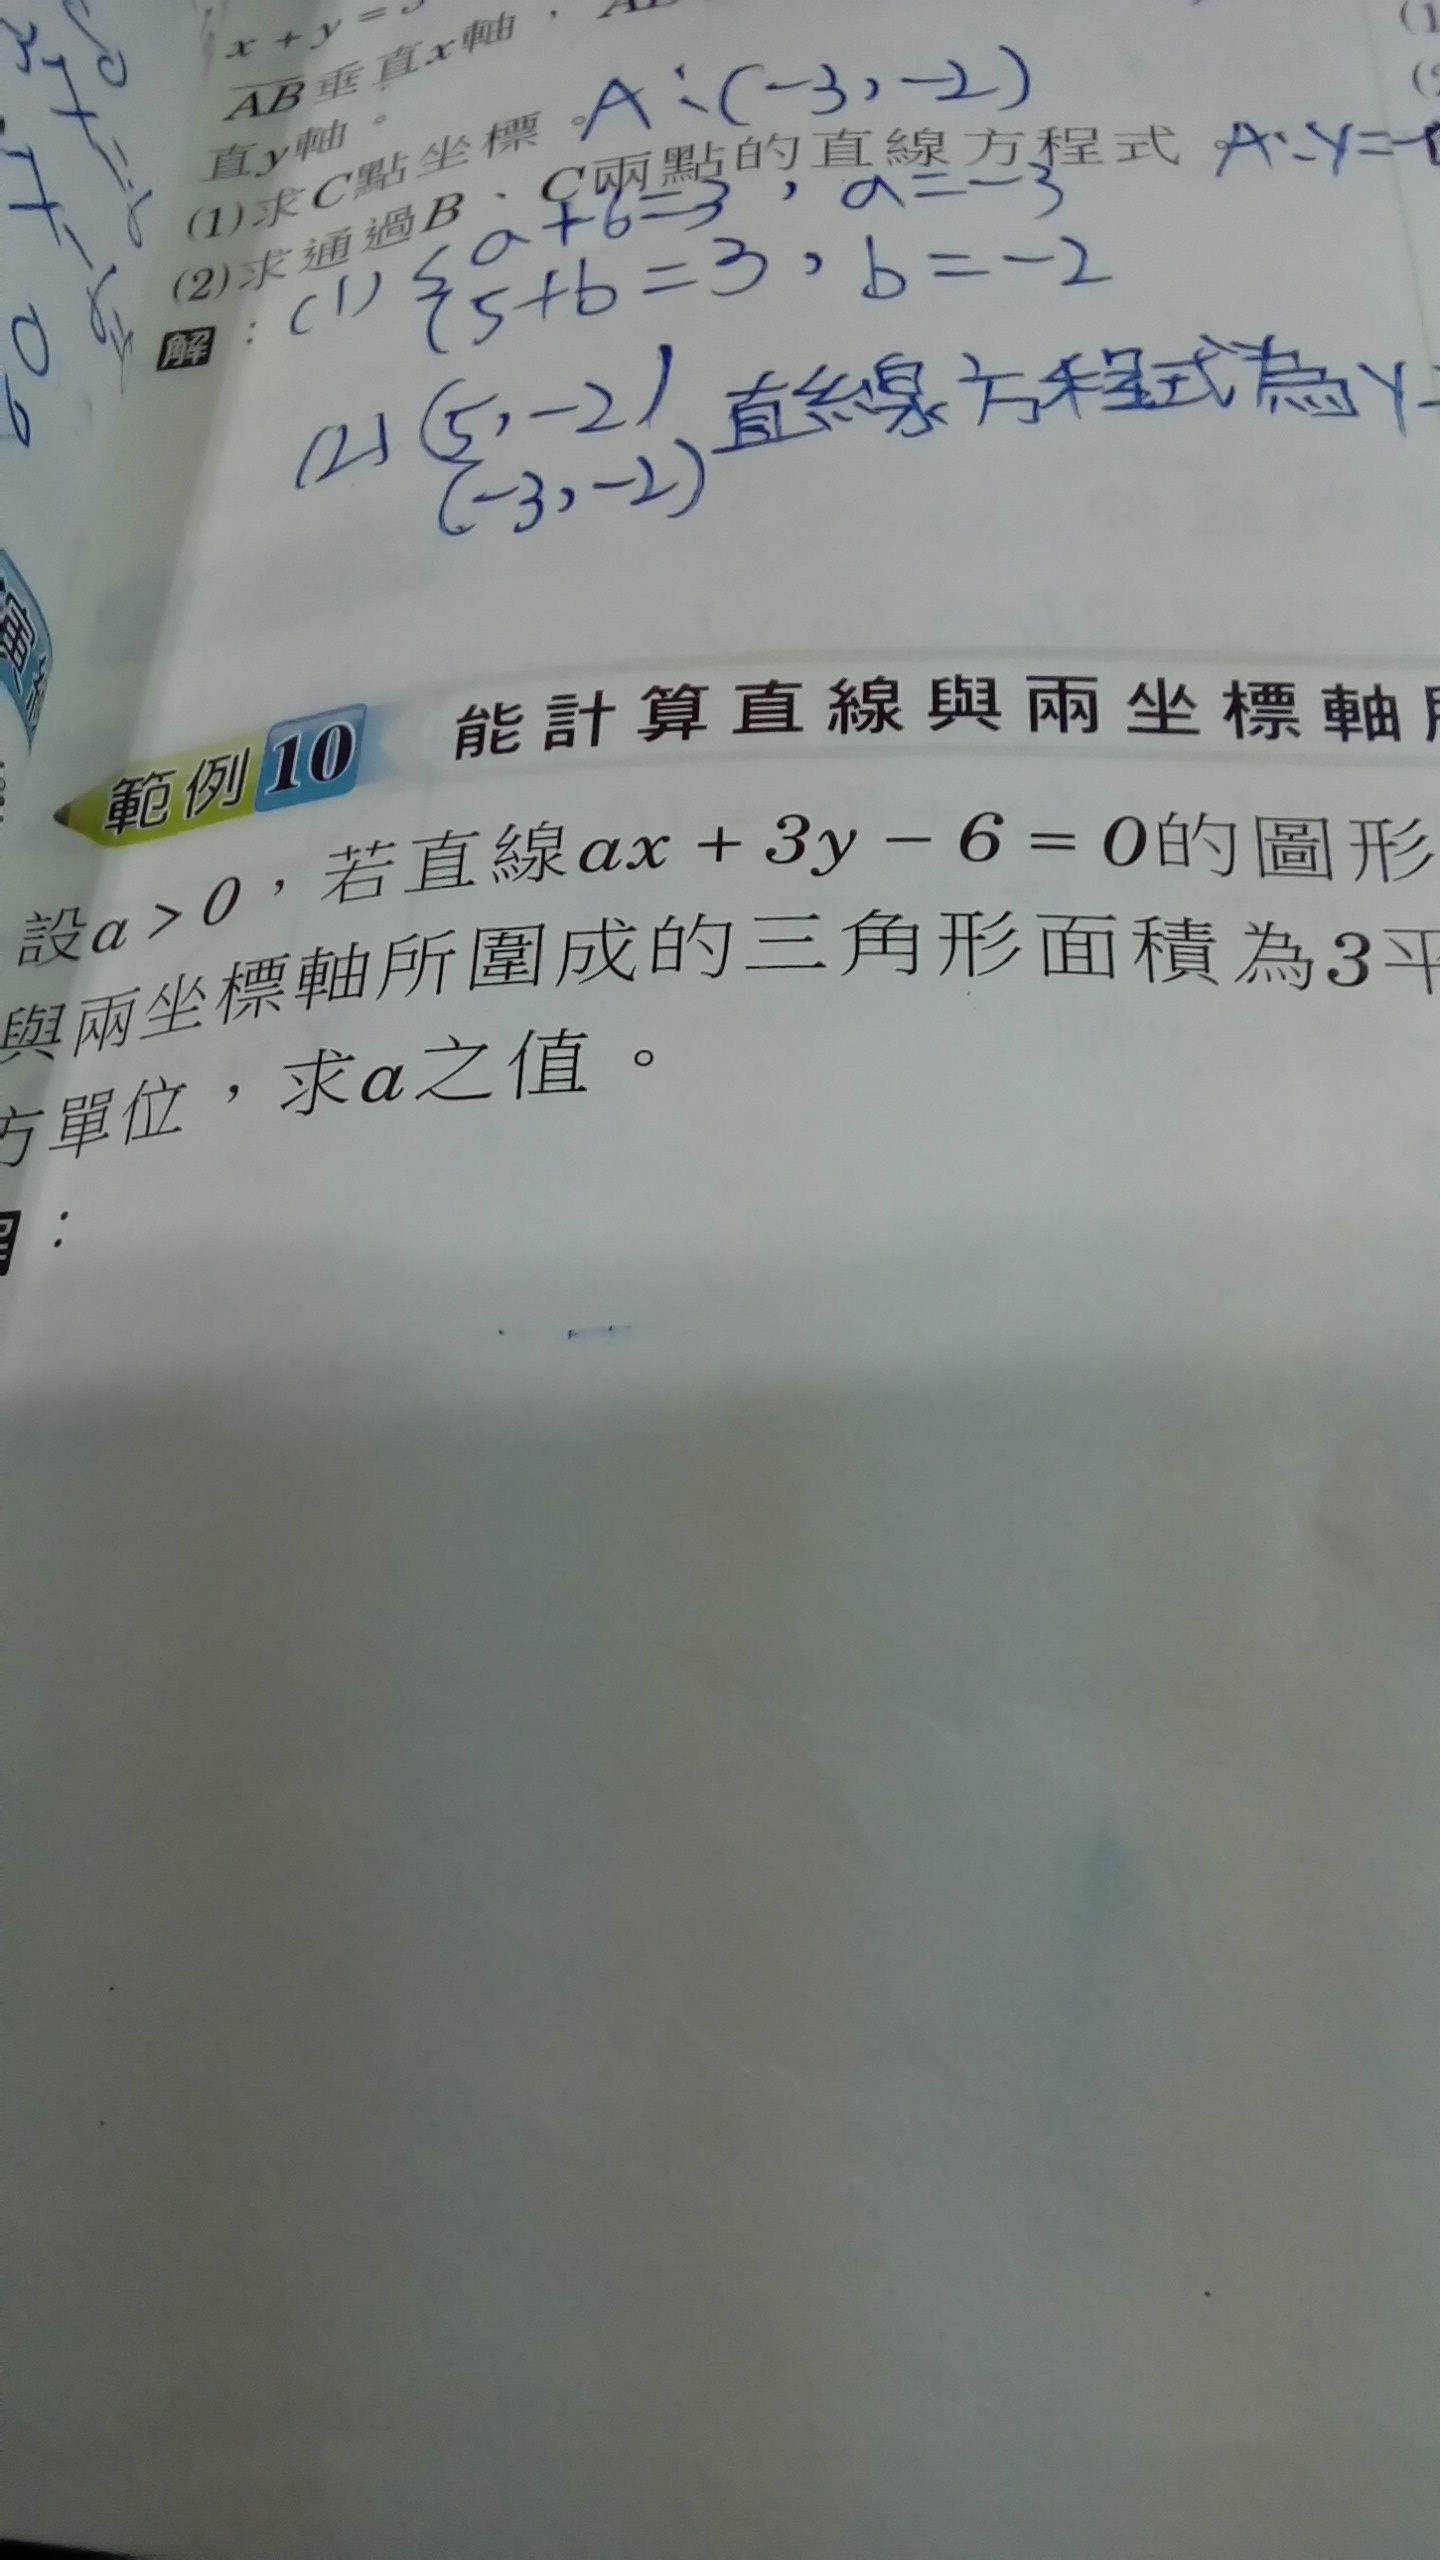 x + y = 3
AB垂直x軸，
直y軸。
(1)求C點坐標。A：(-3，-2)
(2)求通過B、C兩點的直線方程式。A：y=-
解：(1) { a+b=3，a=-3
5+b=3，b=-2
(2) (5，-2) 直線方程式為y
(-3，-2)
範例10 能計算直線與兩坐標軸
設a > 0，若直線ax + 3y - 6 = 0的圖形
與兩坐標軸所圍成的三角形面積為3平
方單位，求a之值。
：